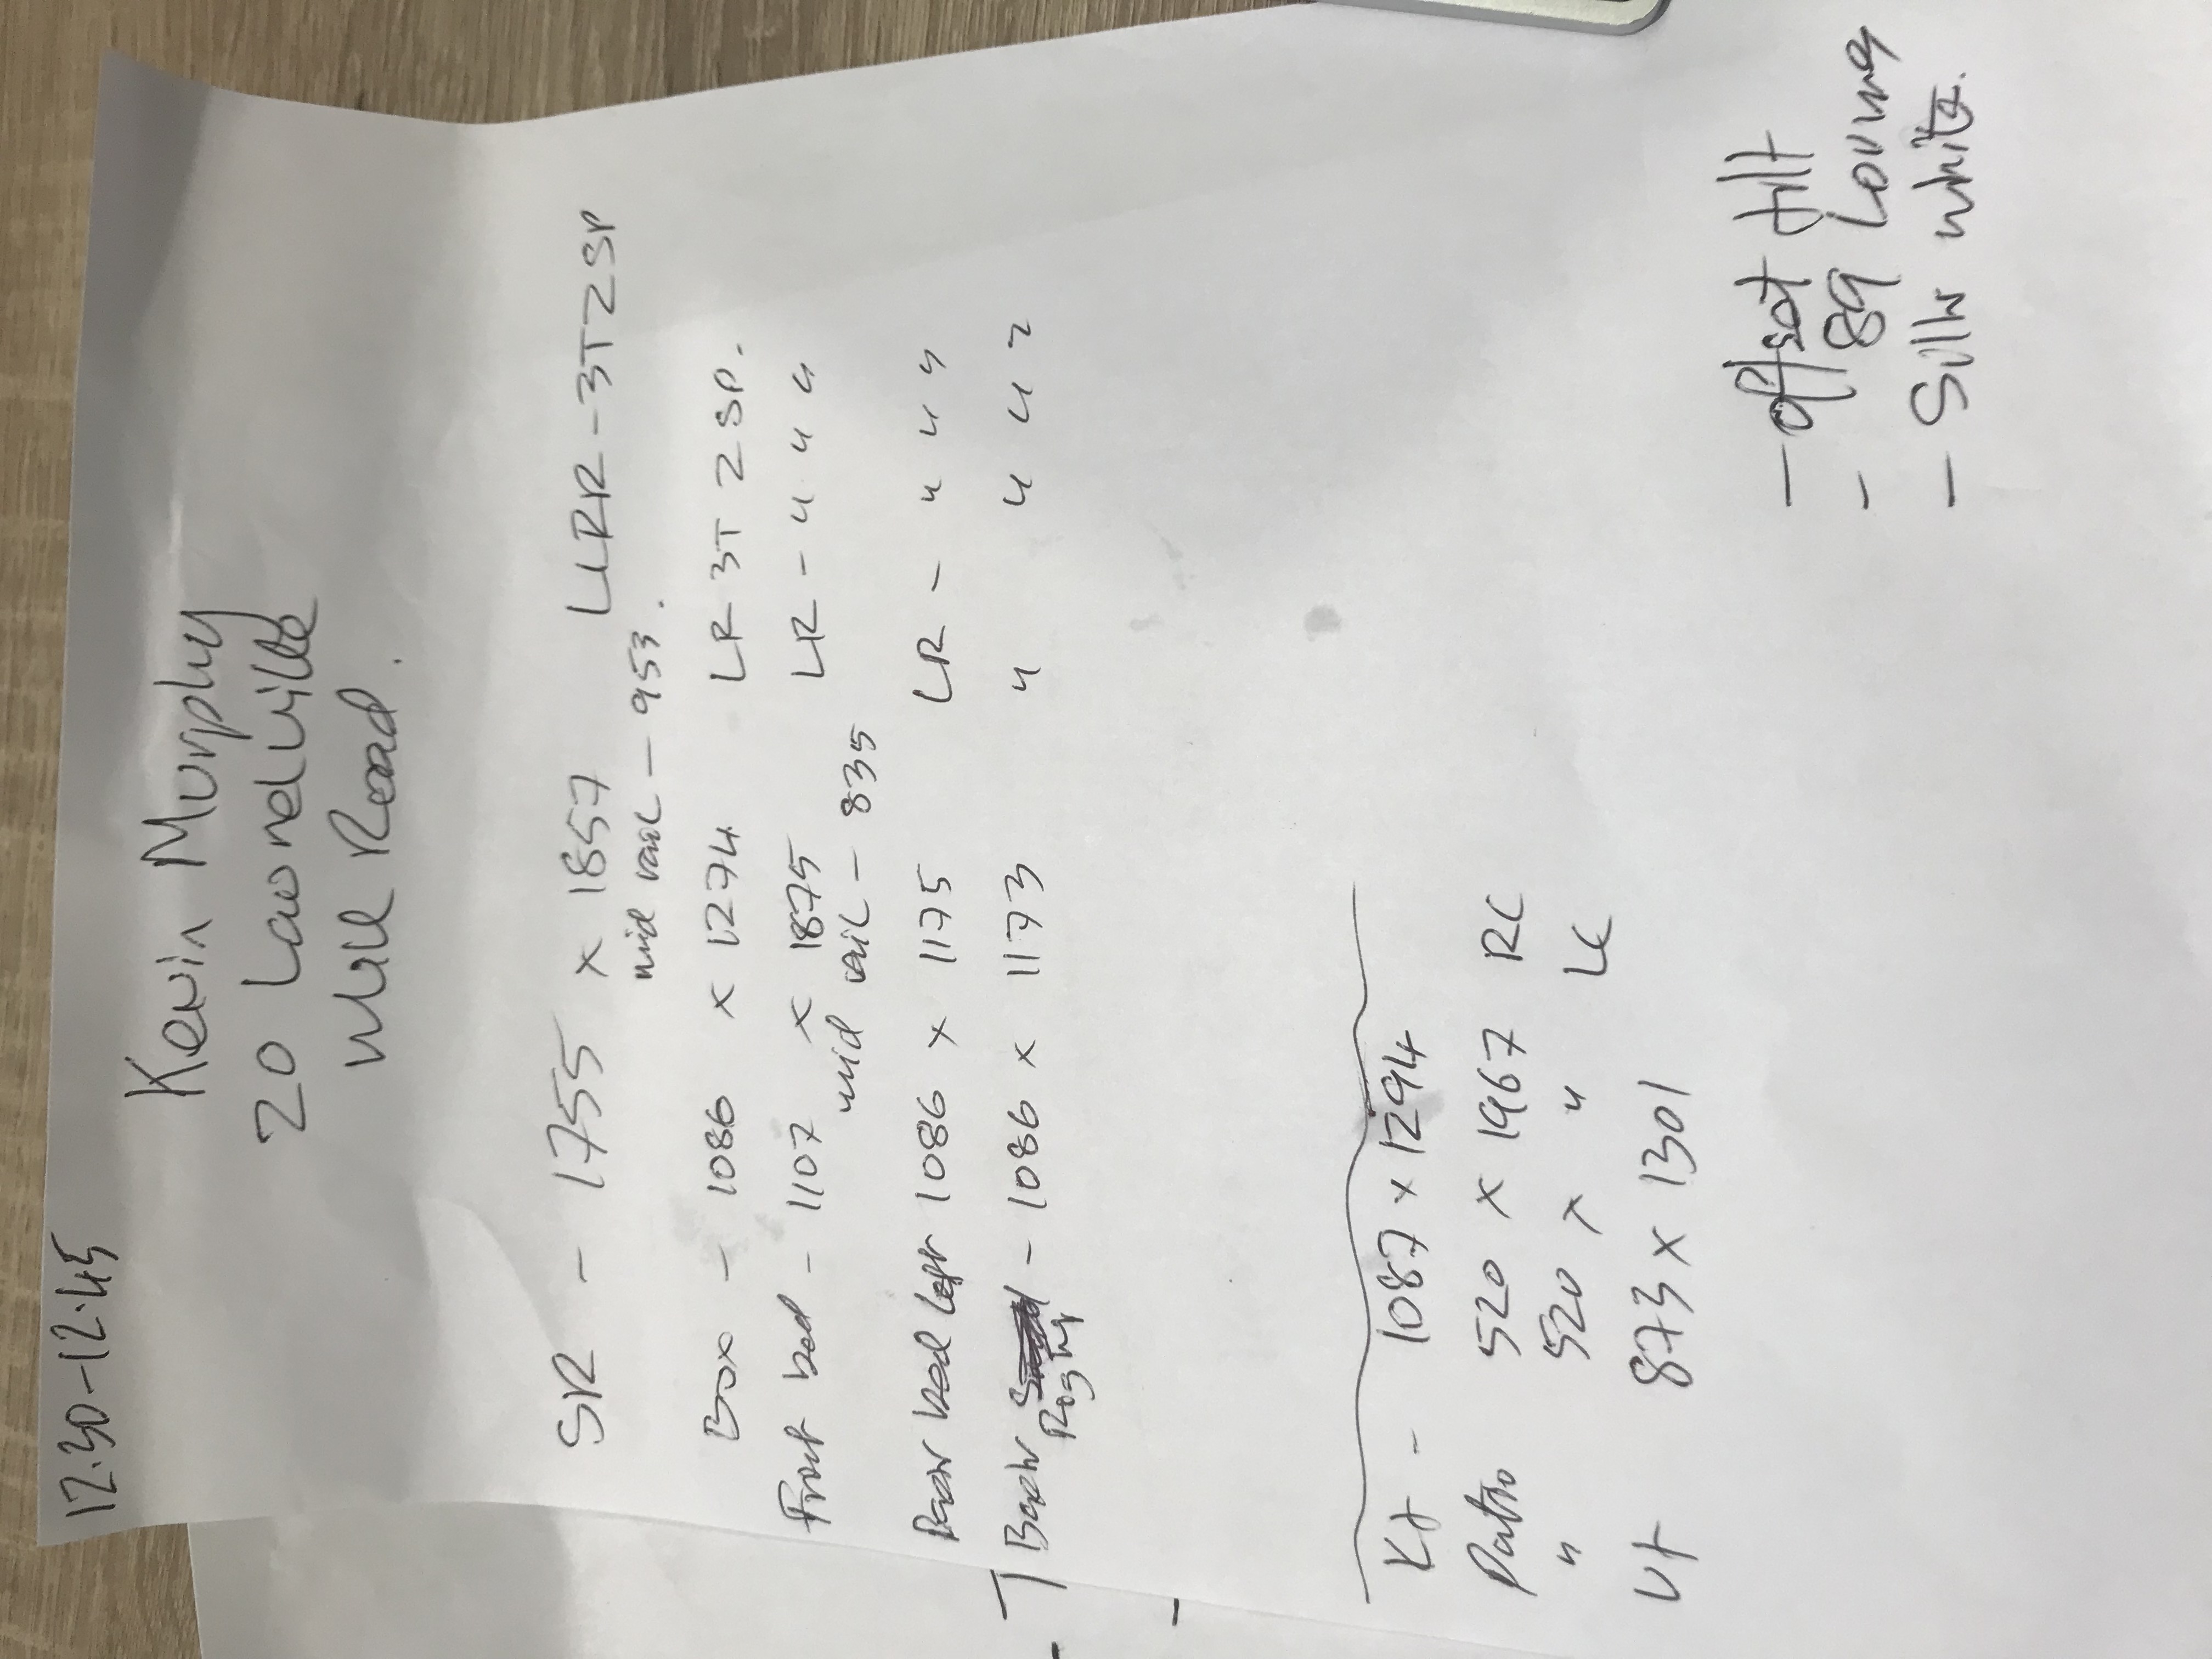 12.30-12.45
Kevin Murphy
20 Lawnelville
Well Road.
SR - 1755 x 1857 LLRR-3T2SP
mid rail - 953.
Box - 1086 x 1274 LR 3T 2 SP.
Front bed - 1107 x 1875 LR - " " "
mid rail - 835
bed left 1086 x 1175 LR - " " "
- 1086 x 1173 " " " "
Kt - 1087 x 1294
Patio 520 x 1967 RC
" 520 x " LC
Ut 873 x 1301
- offset tilt
- 89 Louvre
- Silk white.